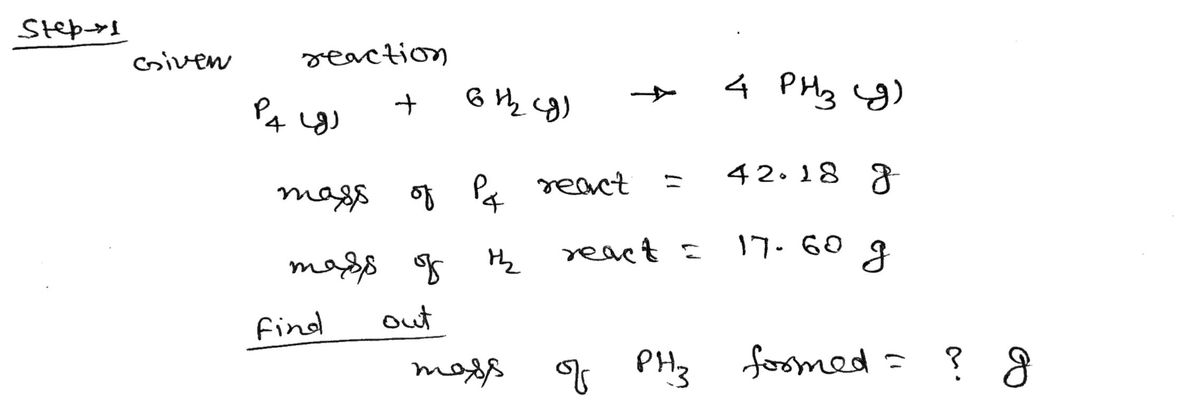 Step→1
Given reaction
P₄ (g) + 6 H₂ (g) → 4 PH₃ (g)
mass of P₄ react = 42.18 g
mass of H₂ react = 17.60 g
Find out
mass of PH₃ formed = ? g